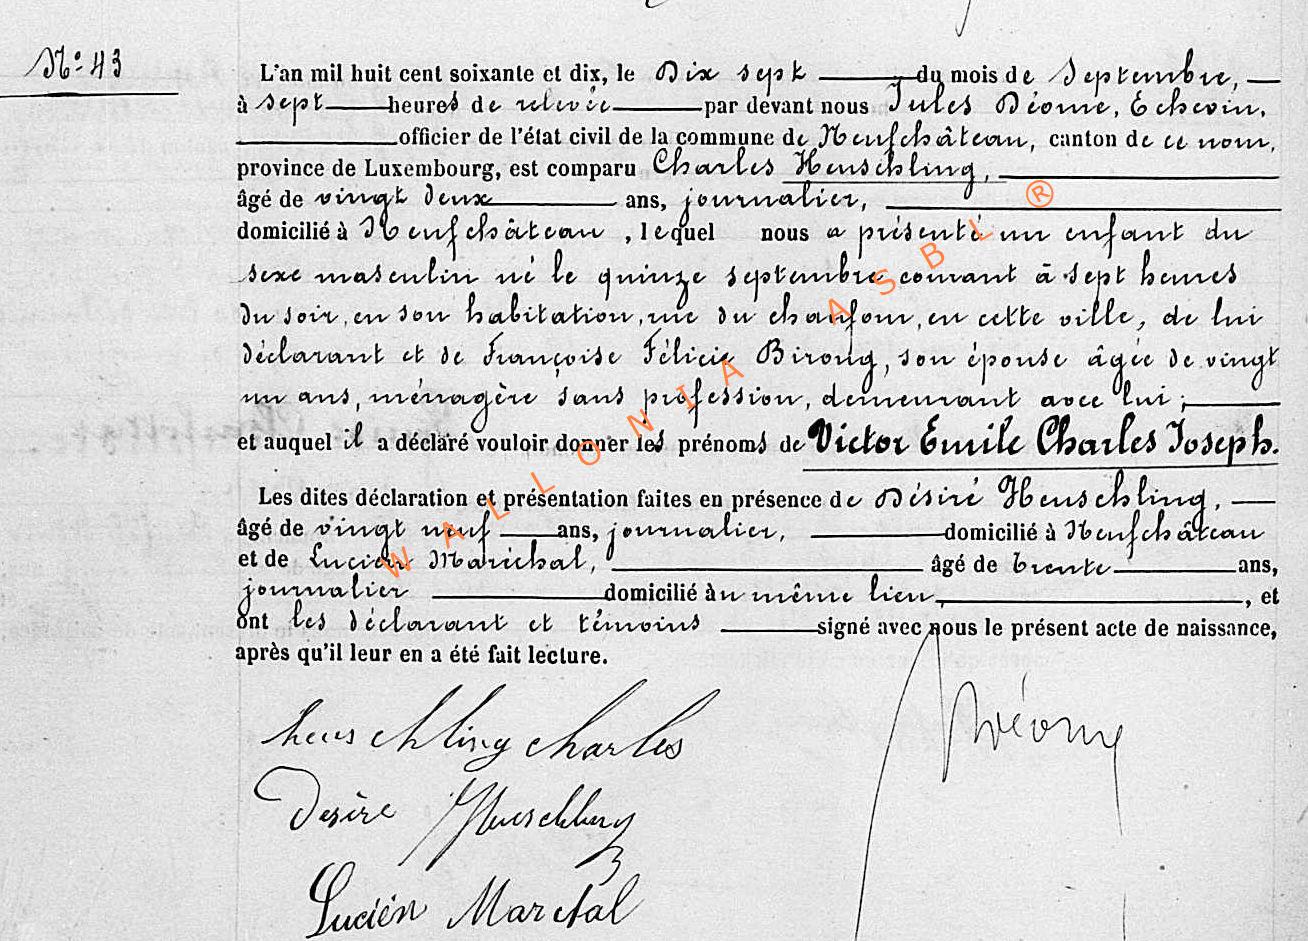 N° 43
L'an mil huit cent soixante et dix, le Dix sept du mois de Septembre,
à sept heures de relevée par devant nous Jules Déome, Echevin,
officier de l'état civil de la commune de Neufchâteau, canton de ce nom,
province de Luxembourg, est comparu Charles Heuschling,
âgé de vingt deux ans, journalier,
domicilié à Neufchâteau, lequel nous a présenté un enfant du
sexe masculin né le quinze septembre courant à sept heures
du soir, en son habitation, rue du chaufour, en cette ville, de lui
déclarant et de Françoise Félicie Birong, son épouse âgée de vingt
un ans, ménagère sans profession, demeurant avec lui;
et auquel il a déclaré vouloir donner les prénoms de Victor Emile Charles Joseph.
Les dites déclaration et présentation faites en présence de Désiré Heuschling,
âgé de vingt neuf ans, journalier, domicilié à Neufchâteau
et de Lucien Maréchal, âgé de trente ans,
journalier domicilié au même lieu, et
ont les déclarant et témoins signé avec nous le présent acte de naissance,
après qu'il leur en a été fait lecture.
heuschling charles
JDéome
Désire Heuschling
Lucién Marchal
WALLONIA ASBL ®